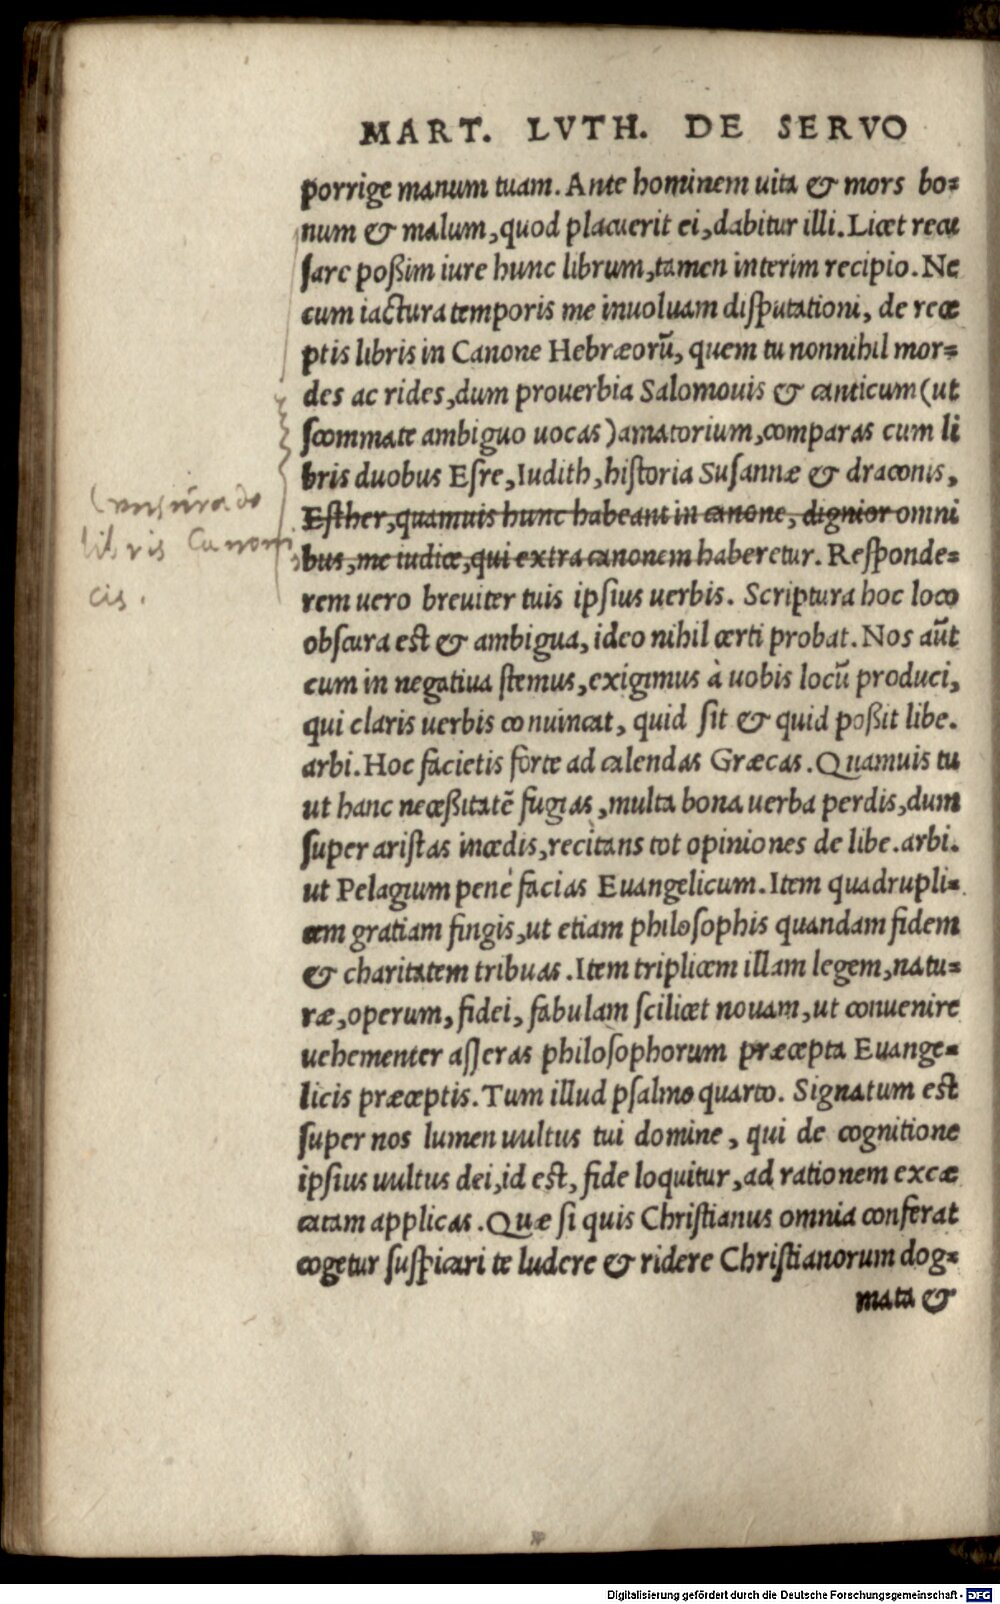 MART. LVTH. DE SERVO
porrige manum tuam. Ante hominem uita & mors bo=
num & malum, quod placuerit ei, dabitur illi. Licet recu
sare poßim iure hunc librum, tamen interim recipio. Ne
cum iactura temporis me inuoluam disputationi, de rece
ptis libris in Canone Hebræorū, quem tu nonnihil mor=
des ac rides, dum prouerbia Salomouis & canticum (ut
scommate ambiguo uocas) amatorium, comparas cum li
bris duobus Esre, Iudith, historia Susannæ & draconis,
Esther, quamuis hunc habeant in canone, dignior omni
bus, me iudice, qui extra canonem haberetur. Responde=
rem uero breuiter tuis ipsius uerbis. Scriptura hoc loco
obscura est & ambigua, ideo nihil certi probat. Nos aūt
cum in negatiua stemus, exigimus à uobis locū produci,
qui claris uerbis conuincat, quid sit & quid poßit libe.
arbi. Hoc facietis forte ad calendas Græcas. Quamuis tu
ut hanc neceßitatē fugias, multa bona uerba perdis, dum
super aristas incedis, recitans tot opiniones de libe. arbi.
ut Pelagium penè facias Euangelicum. Item quadrupli=
cem gratiam fingis, ut etiam philosophis quandam fidem
& charitatem tribuas. Item triplicem illam legem, natu=
ræ, operum, fidei, fabulam scilicet nouam, ut conuenire
uehementer asseras philosophorum præcepta Euange=
licis præceptis. Tum illud psalmo quarto. Signatum est
super nos lumen uultus tui domine, qui de cognitione
ipsius uultus dei, id est, fide loquitur, ad rationem excæ
catam applicas. Quæ si quis Christianus omnia conferat
cogetur suspicari te ludere & ridere Christianorum dog=
mata &
Censura de
libris Canoni
cis.
Digitalisierung gefördert durch die Deutsche Forschungsgemeinschaft - DFG